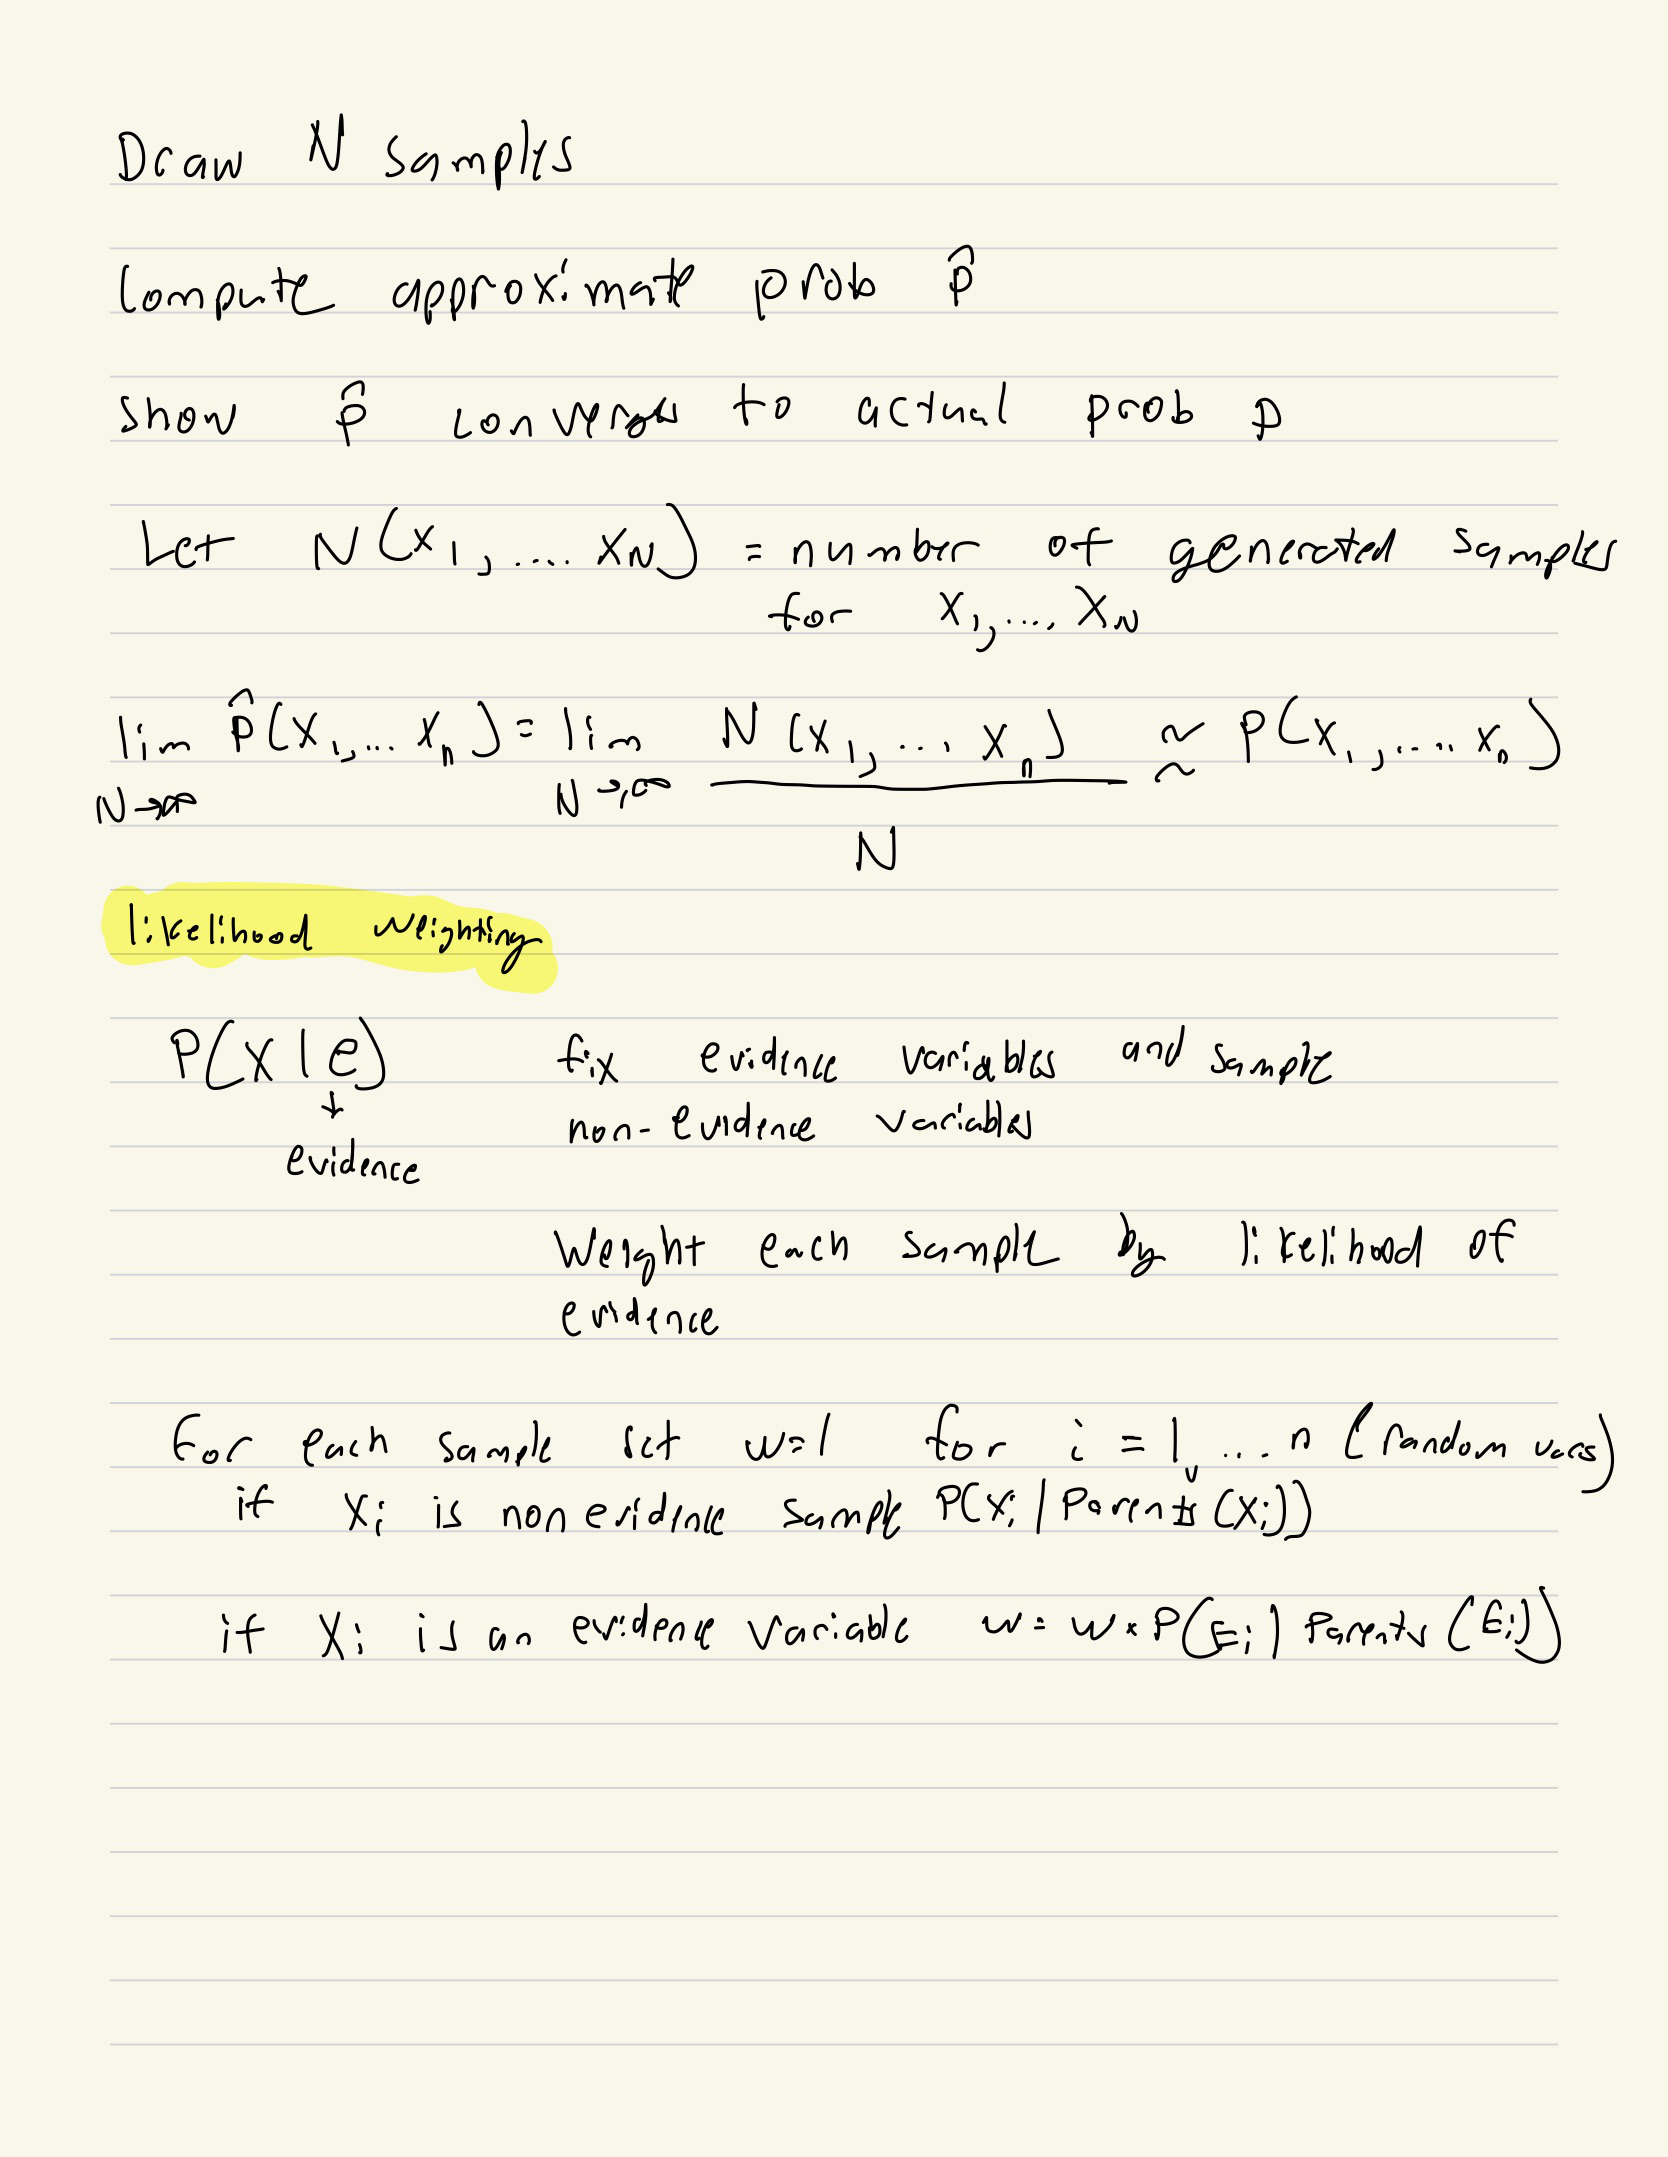 Draw N samples
Compute approximate prob p̂
show p̂ converges to actual prob p
Let N(x₁,.... x_N) = number of generated samples
for x₁,..., x_N
lim p̂(x₁,... xₙ) = lim N(x₁,... xₙ) ≈ P(x₁,.... xₙ)
N→∞ N→∞ N
likelihood weighting
P(X|e) fix evidence variables and sample
↓ non-evidence variables
evidence
Weight each sample by likelihood of
evidence
For each sample set w=1 for i = 1, ... n (random vars)
if Xᵢ is non evidence sample P(xᵢ | Parents(Xᵢ))
if Xᵢ is an evidence variable w = w * P(Eᵢ | Parents(Eᵢ))